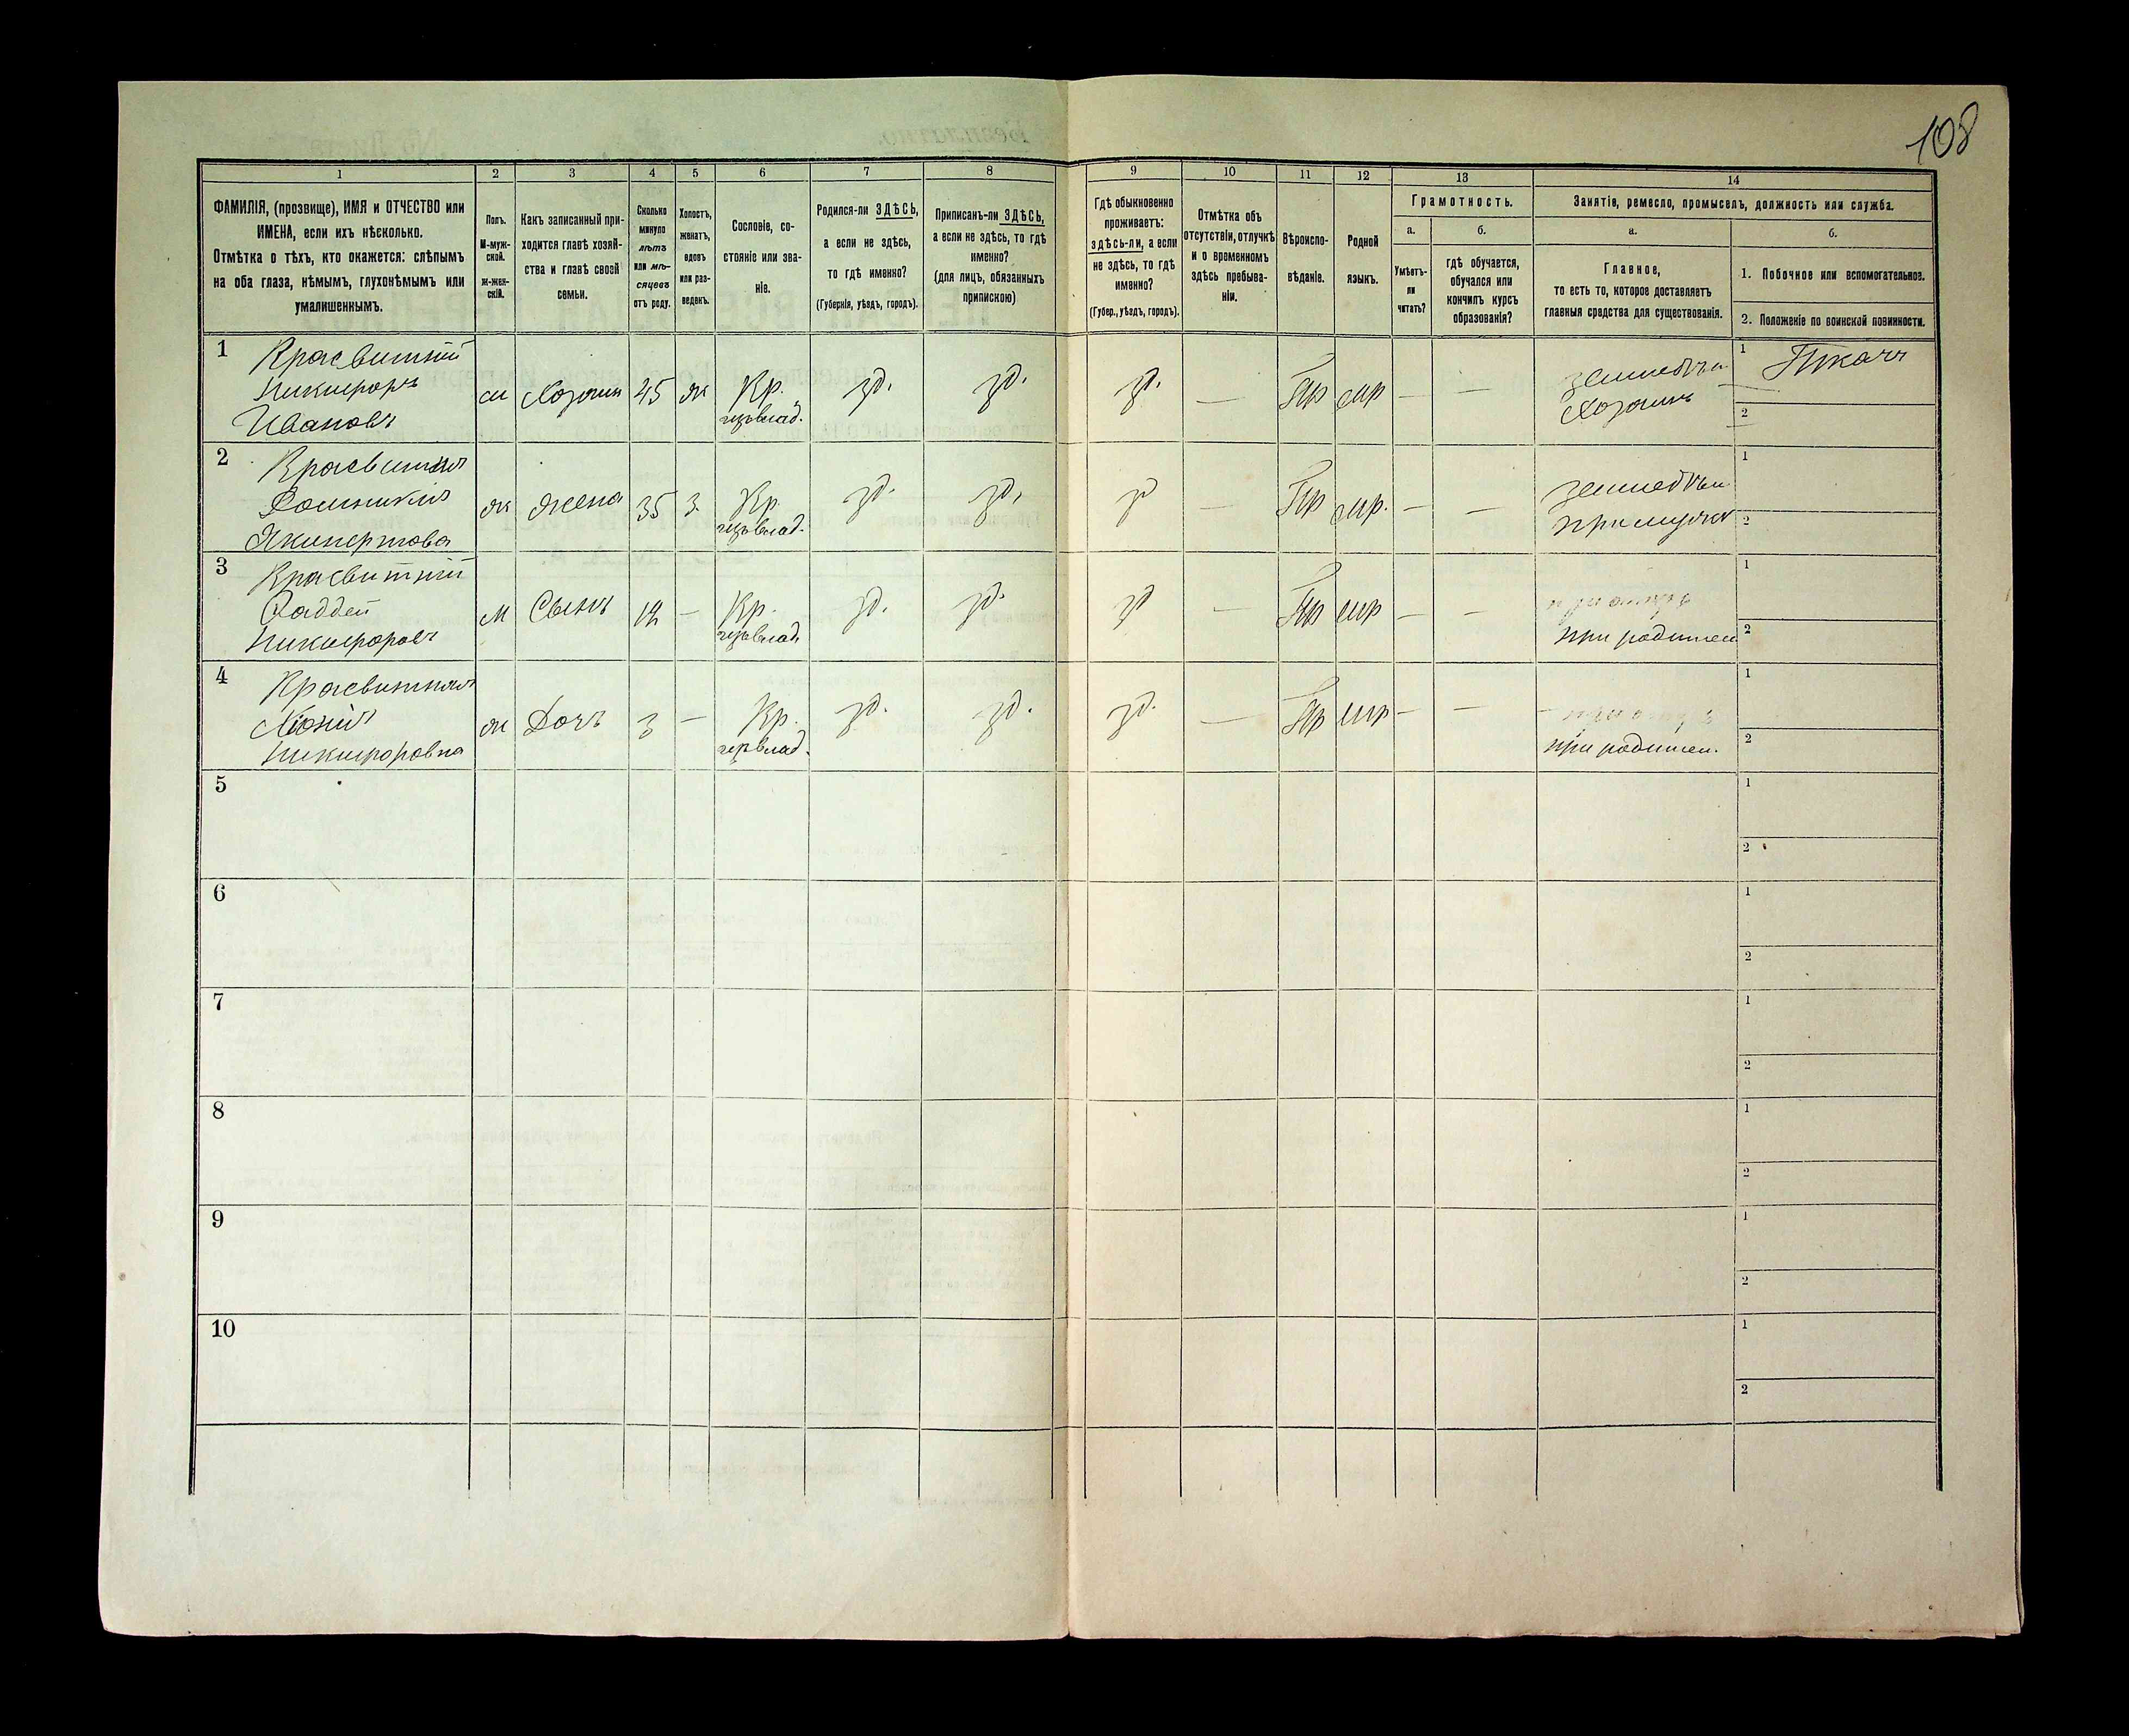 108
1 2 3 4 5 6 7 8 9 10 11 12 13 14
ФАМИЛІЯ, (прозвище), ИМЯ и ОТЧЕСТВО или
ИМЕНА, если ихъ нѣсколько.
Отмѣтка о тѣхъ, кто окажется: слѣпымъ
на оба глаза, нѣмымъ, глухонѣмымъ или
умалишеннымъ.
Полъ.
М-муж-
ской.
ж-жен-
скій.
Какъ записанный при-
ходится главѣ хозяй-
ства и главѣ своей
семьи.
Сколько
минуло
лѣтъ
или мѣ-
сяцевъ
отъ роду.
Холостъ,
женатъ,
вдовъ
или раз-
веденъ.
Сословіе, со-
стояніе или зва-
ніе.
Родился-ли ЗДѢСЬ,
а если не здѣсь,
то гдѣ именно?
(Губернія, уѣздъ, городъ).
Приписанъ-ли ЗДѢСЬ,
а если не здѣсь, то гдѣ
именно?
(для лицъ, обязанныхъ
припискою)
Гдѣ обыкновенно
проживаетъ:
здѣсь-ли, а если
не здѣсь, то гдѣ
именно?
(Губер., уѣздъ, городъ).
Отмѣтка объ
отсутствіи, отлучкѣ
и о временномъ
здѣсь пребыва-
ніи.
Вѣроиспо-
вѣданіе.
Родной
языкъ.
Грамотность.
а.
Умѣетъ-
ли
читать?
б.
гдѣ обучается,
обучался или
кончилъ курсъ
образованія?
Занятіе, ремесло, промыселъ, должность или служба.
а.
Главное,
то есть то, которое доставляетъ
главныя средства для существованія.
б.
1. Побочное или вспомогательное.
2. Положеніе по воинской повинности.
1 Красвитній м Хозяинъ 45 ж Кр. зд. зд. зд. — Пр мр — — 1 Ткачъ
Никифоръ Хозяинъ
Ивановъ 2
2 Красвитняя ж жена 35 з. Кр. зд. зд. зд — Пр мр. — — 1
Домникія 2
3 Красвитній м Сынъ Кр. зд. зд. зд — Пр мр — — 1
Фаддей при родител 2
Никифоровъ
4 Красвитняя ж Дочь 3 — Кр. зд. зд. зд. — Пр мр — — 1
при родител. 2
Никифоровна
5 1
2
6 1
2
7 1
2
8 1
2
9 1
2
10 1
2